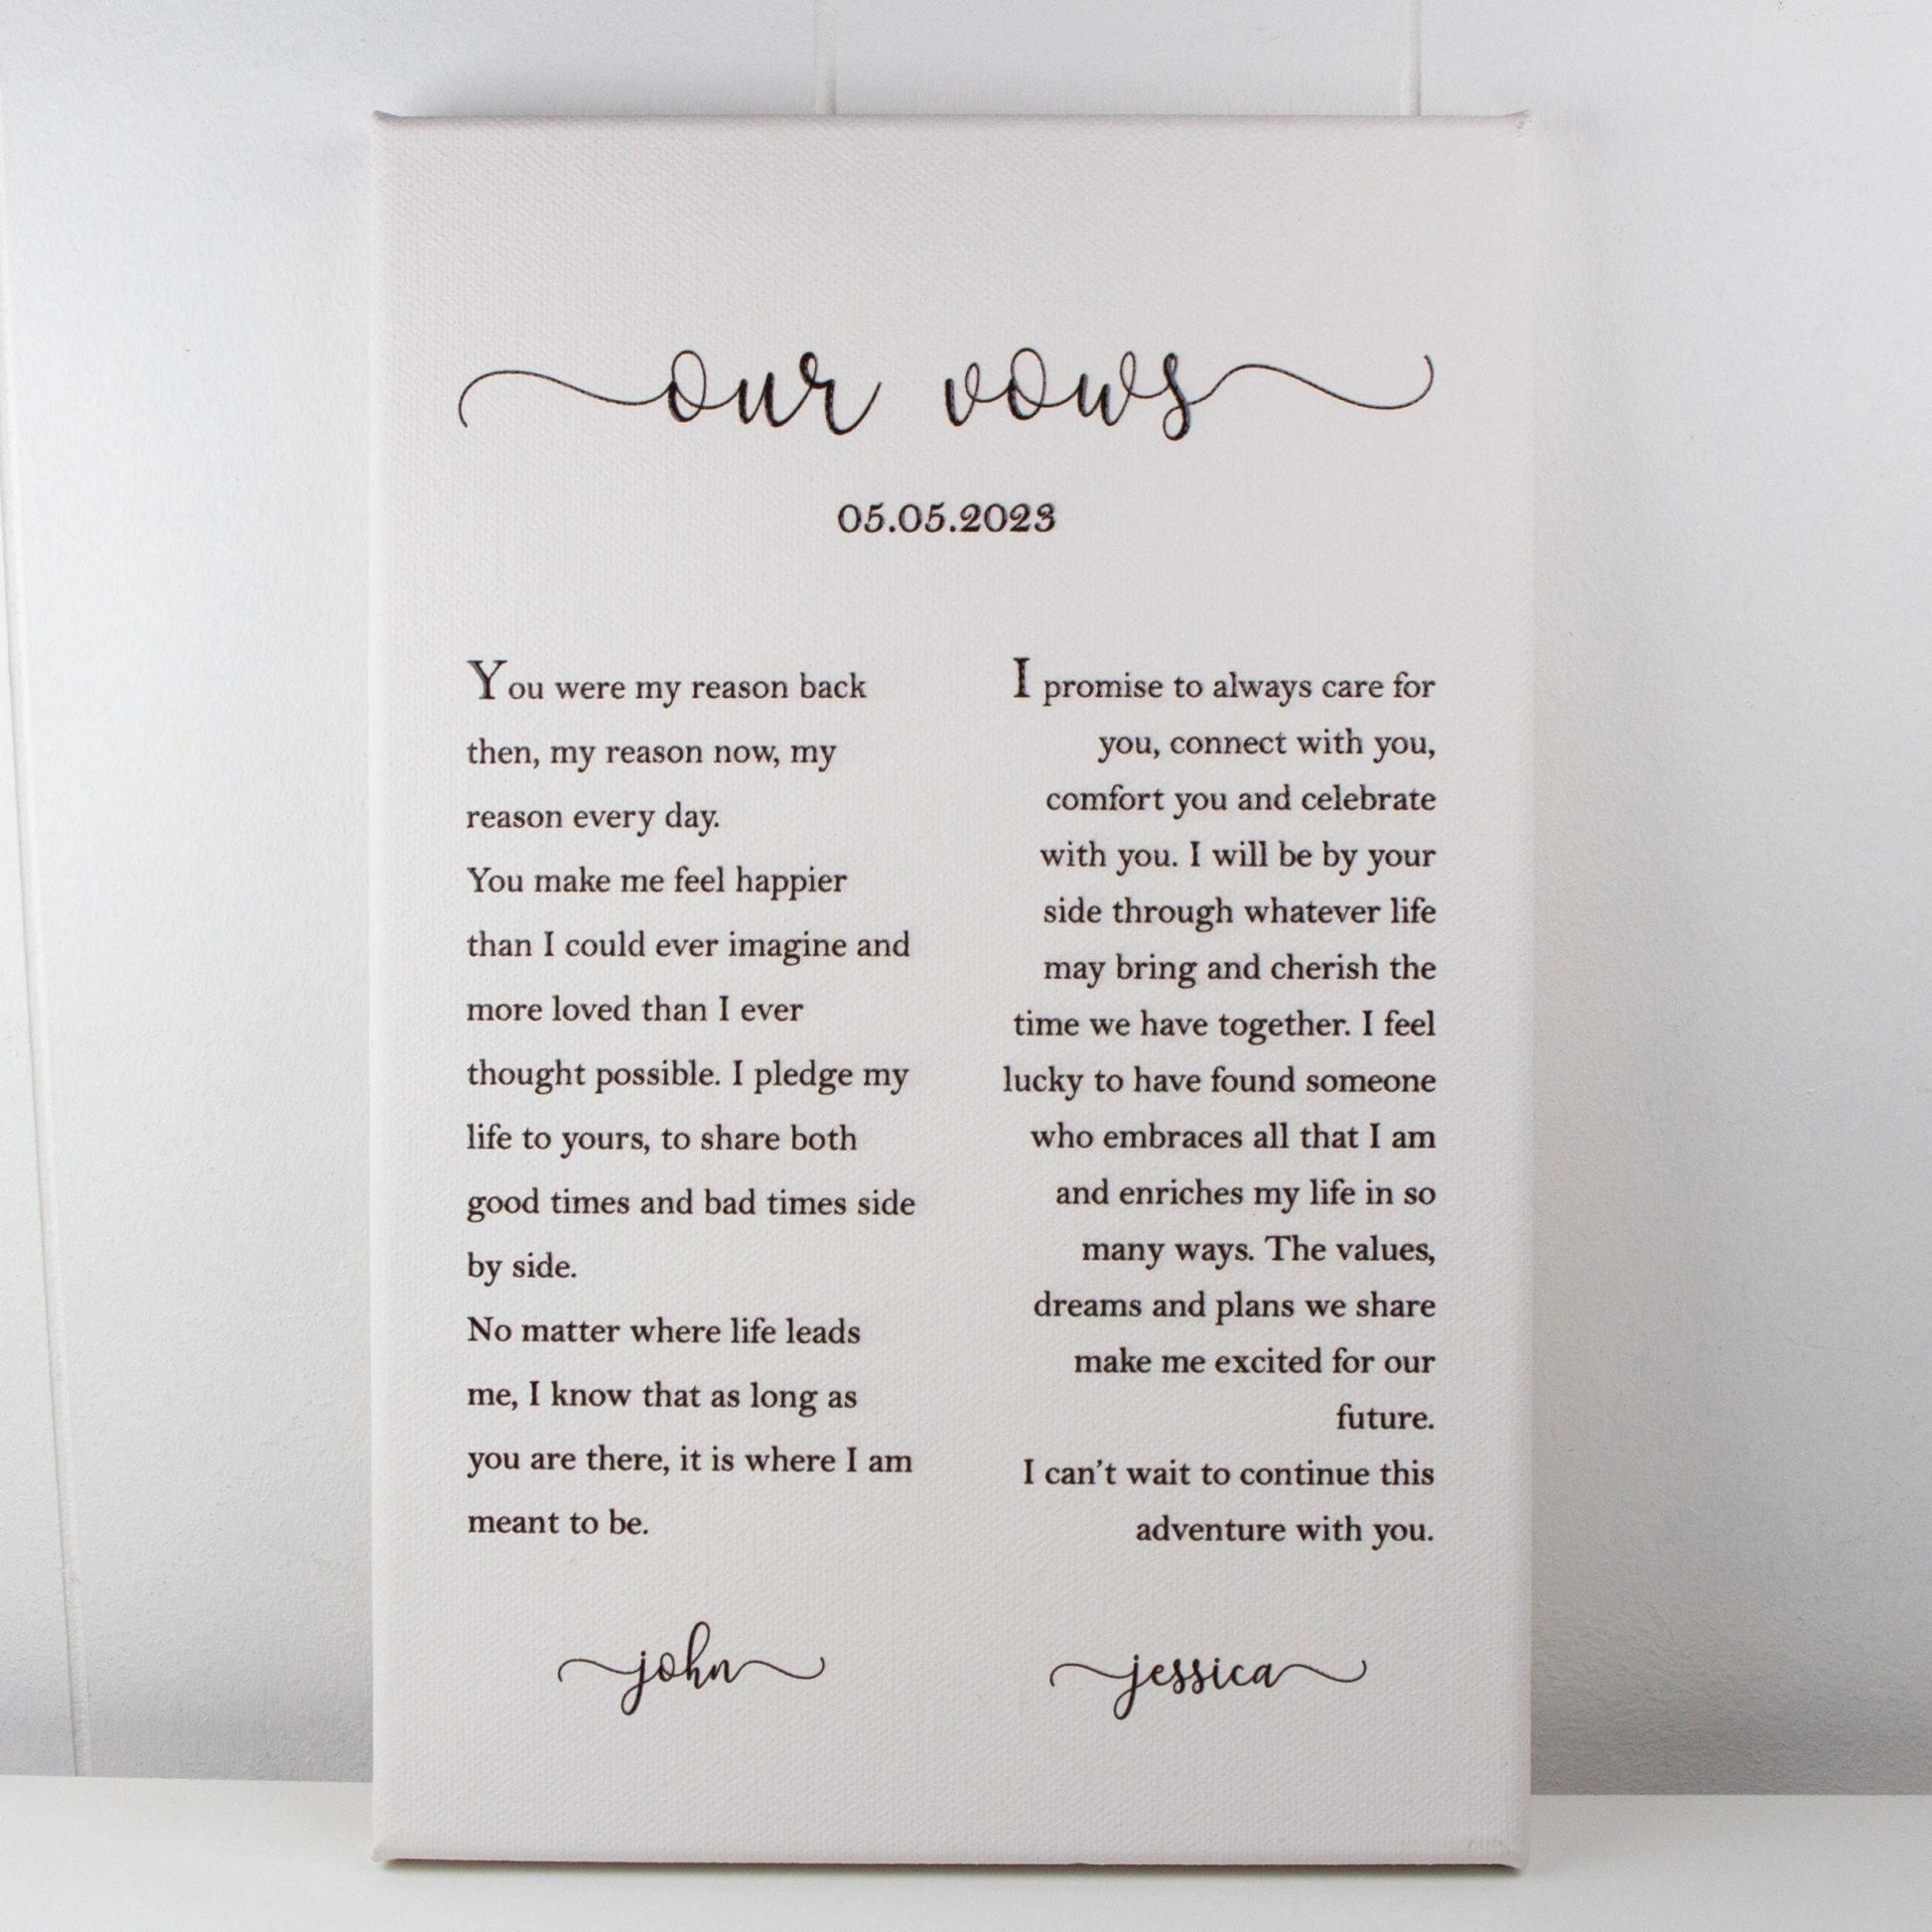 our vows
05.05.2023
You were my reason back
then, my reason now, my
reason every day.
You make me feel happier
than I could ever imagine and
more loved than I ever
thought possible. I pledge my
life to yours, to share both
good times and bad times side
by side.
No matter where life leads
me, I know that as long as
you are there, it is where I am
meant to be.
john
I promise to always care for
you, connect with you,
comfort you and celebrate
with you. I will be by your
side through whatever life
may bring and cherish the
time we have together. I feel
lucky to have found someone
who embraces all that I am
and enriches my life in so
many ways. The values,
dreams and plans we share
make me excited for our
future.
I can't wait to continue this
adventure with you.
jessica